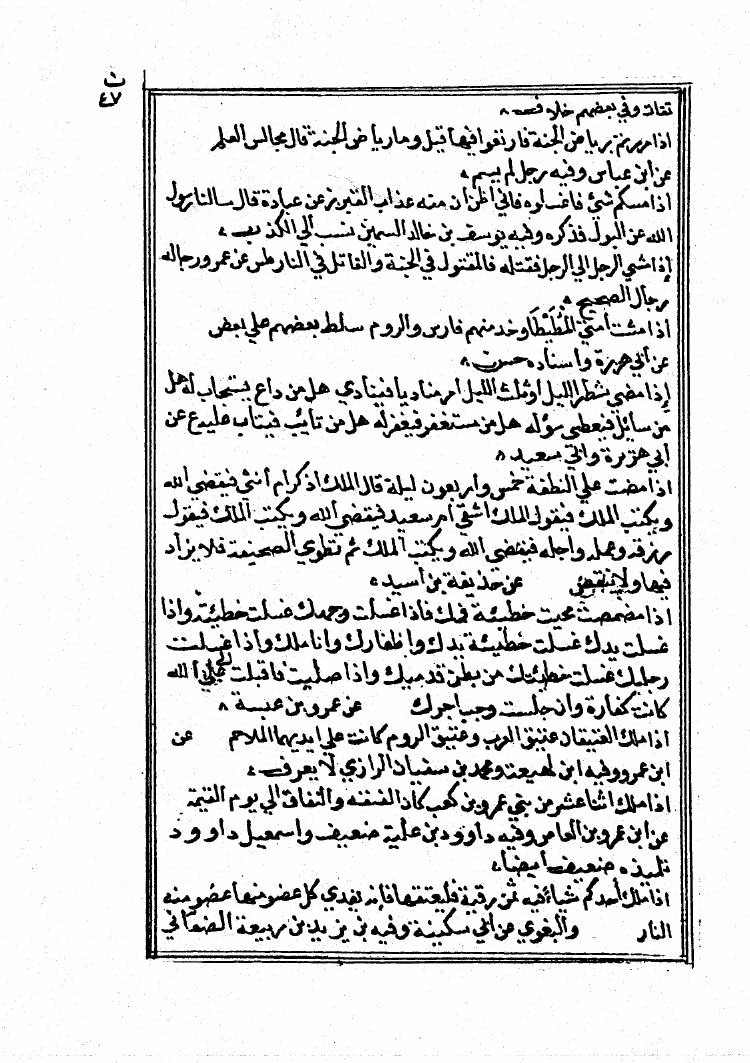 ن
٤٧
ثقات وفي بعضهم خلاف ۸
اذا مررتم برياض الجنة فارتعوا فيها قيل وما رياض الجنة قال مجالس العلم
عن ابن عباس وفيه رجل لم يسم ۸
اذا مسكم شئ فاغسلوه فاني اظن ان منه عذاب القبر بز عن عبادة قال سالنا رسول
الله عن البول فذكره وفيه يوسف بن خالد السمين نسب الي الكذب ۸
إذا مشي الرجل الي الرجل فقتله فالمقتول في الجنة والقاتل في النار طس عن عمر ورجاله
رجال الصحيح ۸
اذا مشت أمتي المُطَيْطَا وخدمتهم فارس والروم سلط بعضهم علي بعض
عن أبي هريرة واسناده حسن ۸
إذا مضي شطر الليل أو ثلث الليل أمر مناديا فينادي هل من داع يستجاب له هل
من سائل فيعطي سؤله هل من مستغفر فيغفر له هل من تائب فيتاب عليه ع عن
أبي هريرة وابي سعيد ۸
اذا مضت علي النطفة خمس واربعون ليلة قال الملك اذكر ام أنثي فيقضي الله
ويكتب الملك فيقول الملك اشقي أم سعيد فيقضي الله ويكتب الملك فيقول
رزقه وعمله وأجله فيقضي الله ويكتب الملك ثم تطوي الصحيفة فلا يزاد
فيها ولا ينقص عن حذيفة بن أسيد ۸
اذا مضمضت محيت خطيئة فمك فاذا غسلت وجهك غسلت خطيئته واذا
غسلت يدك غسلت خطيئة يدك واظفارك واناملك واذا غسلت
رجليك غسلت خطيئتك من بطن قدميك واذا صليت فاقبلت علي الله
كانت كفارة وان جلست وجب اجرك عن عمرو بن عبسة ۸
اذا ملك العتيقان عتيق العرب وعتيق الروم كانت علي ايديهما الملاحم عن
ابن عمرو وفيه ابن لهيعة ومحمد بن سفيان الرازي لا يعرف ۸
اذا ملك اثنا عشر من بني عمرو بن كعب كان النقف والنفاق الي يوم القيمة
عن ابن عمرو بن العاص وفيه داوود بن علبة ضعيف واسمعيل داوود
تليذه ضعيف أيضا ۸
اذا ملك أحدكم شيأ فيه ثمن رقبة فليعتقها فإنه يفدي كل عضو منها عضو منه
النار والبغوي عن ابي سكينة وفيه بن يزيد بن ربيعة الصنعاني